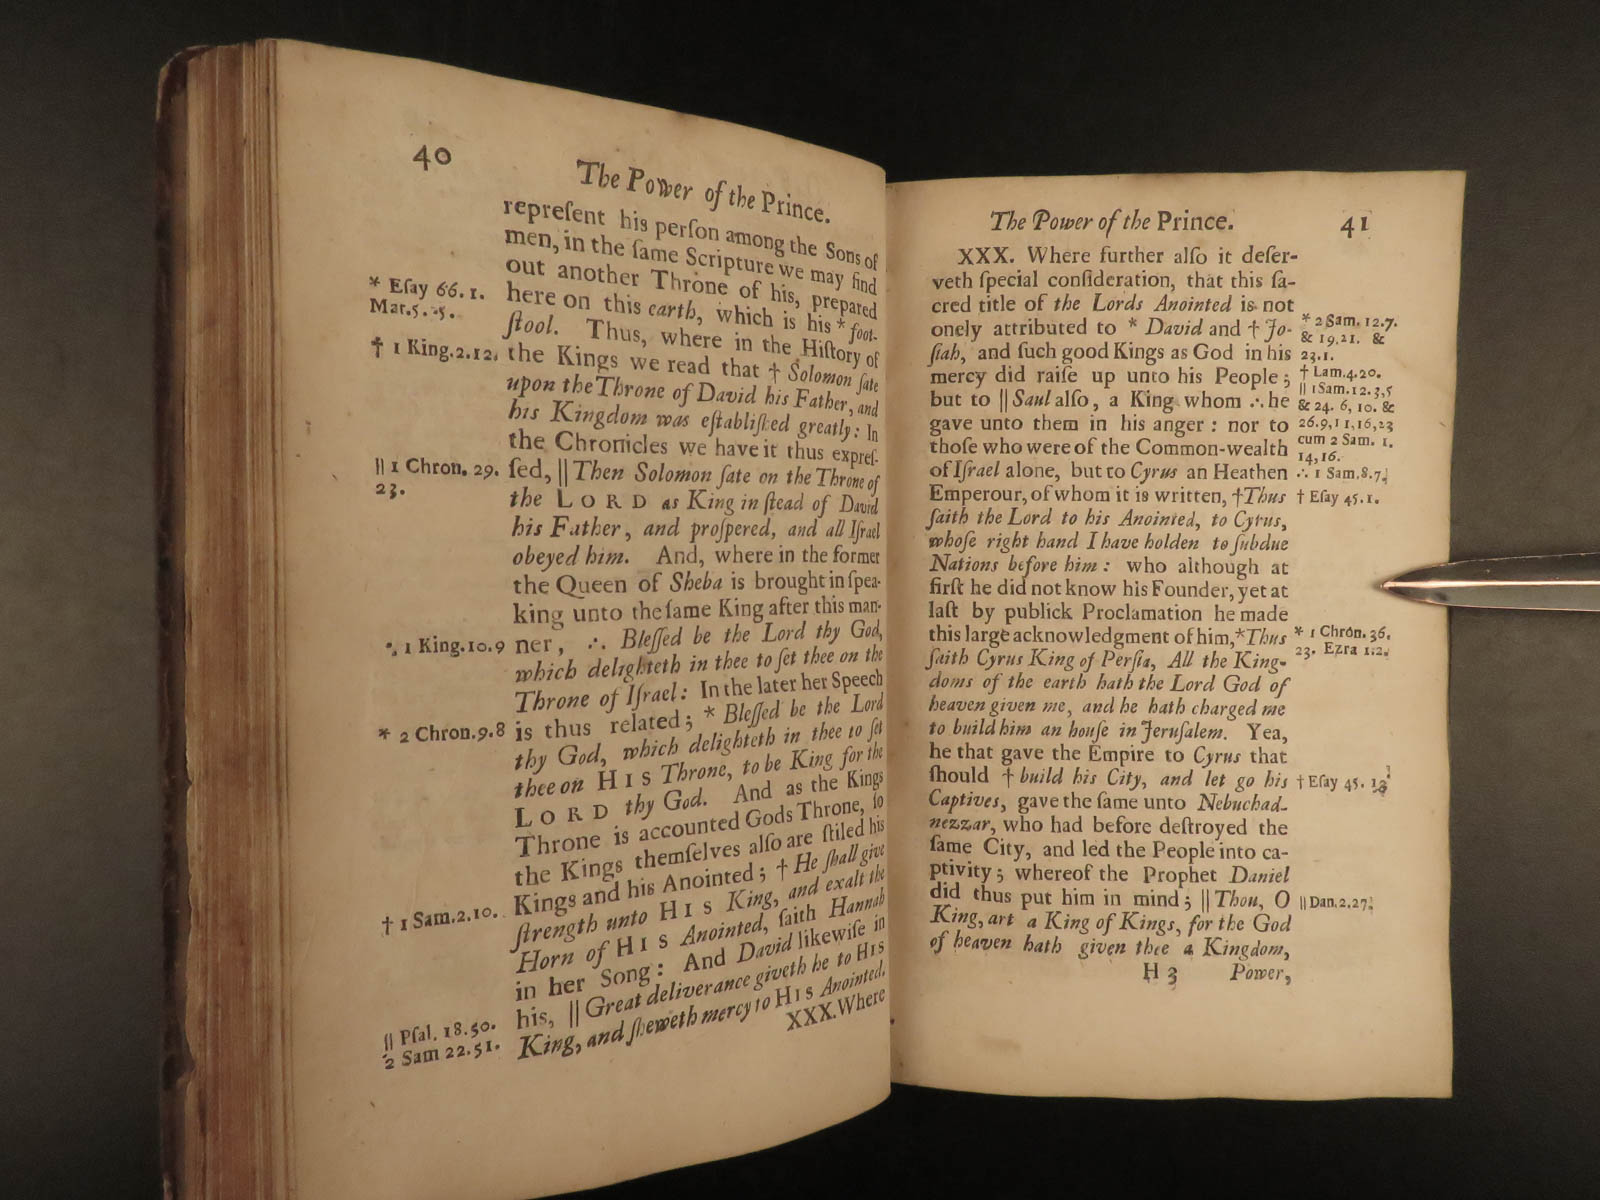 40
The Power of the Prince.
repreſent his perſon among the Sons of
men, in the ſame Scripture we may find
out another Throne of his, prepared
here on this earth, which is his * foot-
ſtool. Thus, where in the Hiſtory of
the Kings we read that † Solomon ſate
upon the Throne of David his Father, and
his Kingdom was eſtabliſhed greatly: In
the Chronicles we have it thus expreſ-
ſed, || Then Solomon ſate on the Throne of
the LORD as King in ſtead of David
his Father, and proſpered, and all Iſrael
obeyed him. And, where in the former
the Queen of Sheba is brought in ſpea-
king unto the ſame King after this man-
ner, ∴ Bleſſed be the Lord thy God,
which delighteth in thee to ſet thee on the
Throne of Iſrael: In the later her Speech
is thus related; * Bleſſed be the Lord
thy God, which delighteth in thee to ſet
thee on HIS Throne, to be King for the
LORD thy God. And as the Kings
Throne is accounted Gods Throne, ſo
the Kings themſelves alſo are ſtiled his
Kings and his Anointed; † He ſhall give
ſtrength unto HIS King, and exalt the
Horn of HIS Anointed, ſaith Hannah
in her Song: And David likewiſe in
his, || Great deliverance giveth he to HIS
King, and ſheweth mercy to HIS Anointed.
XXX. Where
* Eſay 66. 1.
Mar. 5.
† 1 King. 2. 12.
|| 1 Chron. 29.
23.
∴ 1 King. 10. 9
* 2 Chron. 9. 8
† 1 Sam. 2. 10.
|| Pſal. 18. 50.
2 Sam 22. 51.
The Power of the Prince.
41
XXX. Where further alſo it deſer-
veth ſpecial conſideration, that this ſa-
cred title of the Lords Anointed is not
onely attributed to * David and † Jo-
ſiah, and ſuch good Kings as God in his
mercy did raiſe up unto his People;
but to || Saul alſo, a King whom ∴ he
gave unto them in his anger: nor to
thoſe who were of the Common-wealth
of Iſrael alone, but to Cyrus an Heathen
Emperour, of whom it is written, † Thus
ſaith the Lord to his Anointed, to Cyrus,
whoſe right hand I have holden to ſubdue
Nations before him: who although at
firſt he did not know his Founder, yet at
laſt by publick Proclamation he made
this large acknowledgment of him, * Thus
ſaith Cyrus King of Perſia, All the King-
doms of the earth hath the Lord God of
heaven given me, and he hath charged me
to build him an houſe in Jeruſalem. Yea,
he that gave the Empire to Cyrus that
ſhould † build his City, and let go his
Captives, gave the ſame unto Nebuchad-
nezzar, who had before deſtroyed the
ſame City, and led the People into ca-
ptivity; whereof the Prophet Daniel
did thus put him in mind; || Thou, O
King, art a King of Kings, for the God
of heaven hath given thee a Kingdom,
H 3 Power,
* 2 Sam. 12. 7.
& 19. 21. &
23. 1.
† Lam. 4. 20.
|| 1 Sam. 12. 3, 5
& 24. 6, 10. &
26. 9, 11, 16, 23
cum 2 Sam. 1.
14, 16.
∴ 1 Sam. 8. 7.
† Eſay 45. 1.
* 1 Chron. 36.
23. Ezra 1. 2.
† Eſay 45. 13
|| Dan. 2. 27.